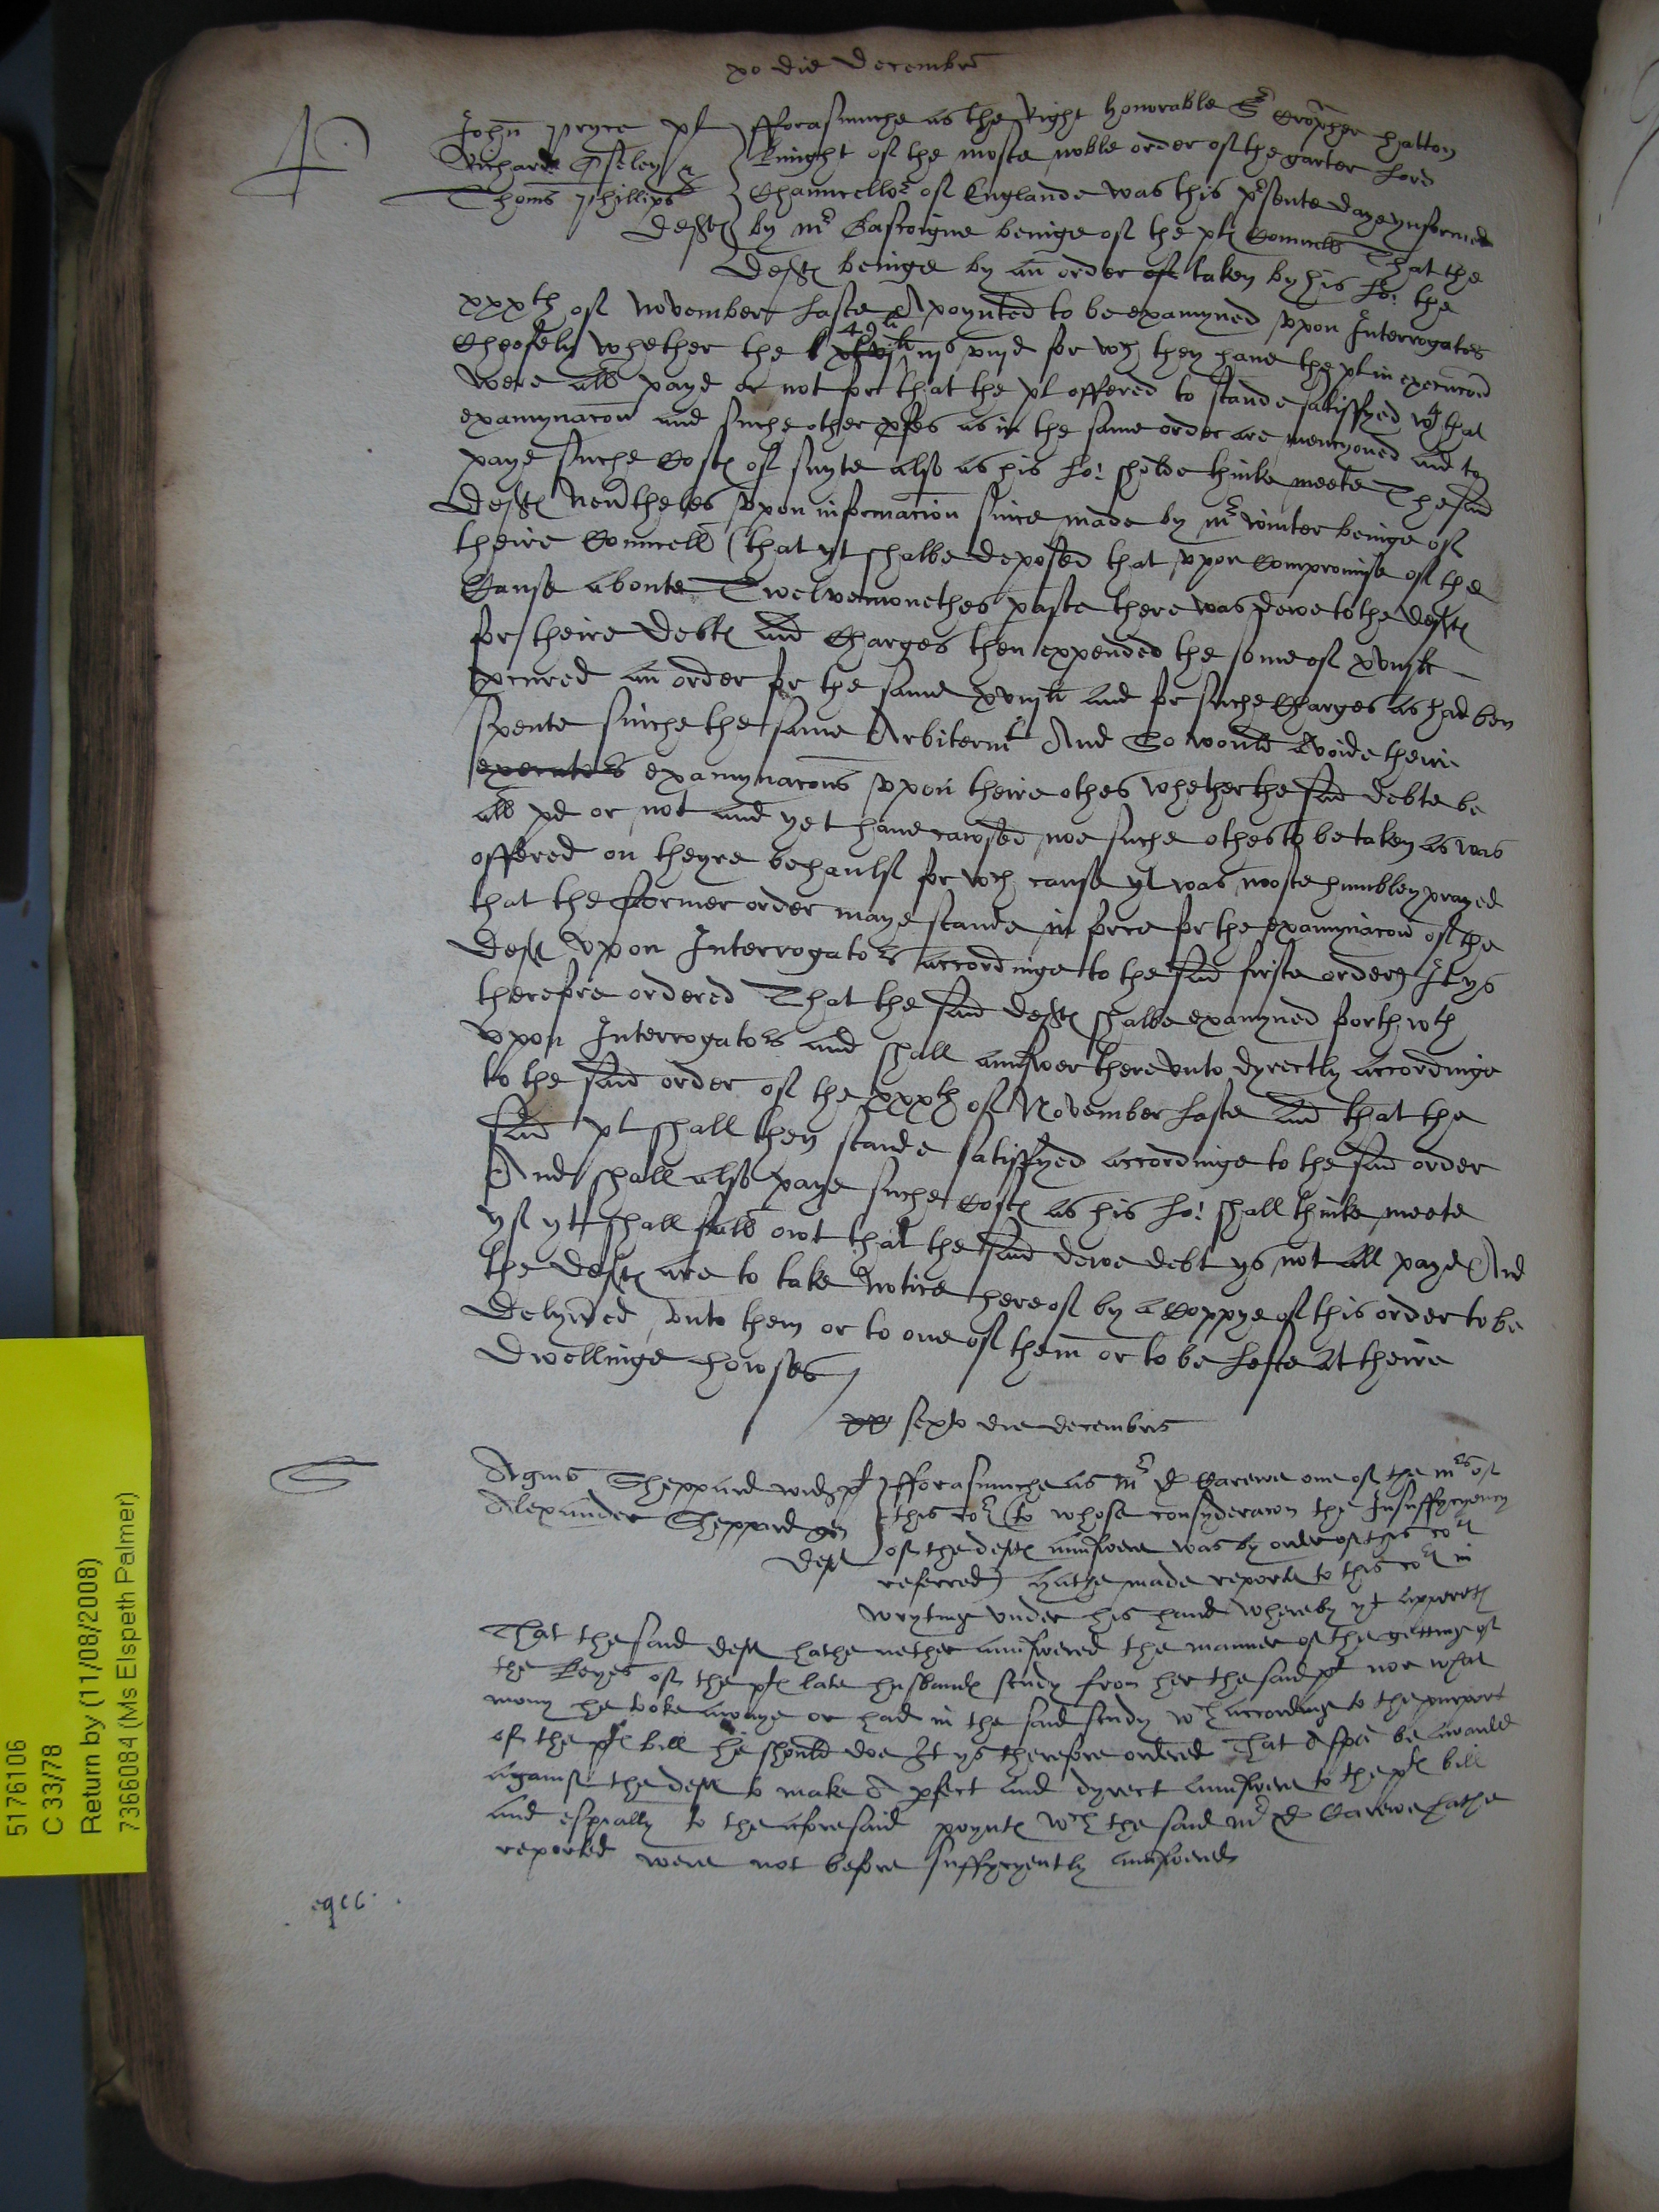 xo die Decembr
P
John Pryce pl
Richard Oseley &
Thoms Phillips
deftes
fforasmuche as the Right honorable Sr Cropher Hatton
knight of the moste noble order of the garter Lord
Chauncellor of Englande was this psente daye ynformed
by mr Gascoigne beinge of the ples Councell That the
deftes beinge by an order of taken by his Lo: the
xxxth of November laste Apoynted to be examyned vpon Interrogatores
Cheefely whether the 49li iijs viijd for wch they have the pl in execucon
were all payd or not for that the pl offered to stande satisfyed wth that
examynacon and suche other pfes as in the same order are mencyoned and to
paye suche Costes of suyte also as his Lo: sholde thinke meete The said
deftes nevtheles vpon informacion since made by mr Winter beinge of
theire Councell (that yt shalbe deposed that vpon Compromise of the
Cause aboute Twelvemonethes paste there was dewe to the deftes
for theire debtes and Charges then expended the some of xviijli
pcured an order for the same xviijli and for suche Charges as had ben
spente sinche the same Arbitermt And So would Avoide theire
examynacons vpon theire othes whether the said debte be
all pd or not and yet have cawsed noe suche othes to be taken as was
offered on theyre behaulf for wch cause yt was moste humbley prayed
that the former order maye stande in force for the examynacon of the
deftes vpon Interrogators accordinge to the said firste order) It ys
therefore ordered That the said deftes shalbe examyned forthwth
vpon Interrogators and shall aunswer therevnto dyrectly accordinge
to the said order of the xxxth of November laste And that the
said pl shall then stande satisfyed accordinge to the said order
And shall also paye suche Costes as his Lo: shall thinke meete
yf ytt shall fall owt that the said dewe debt ys not all payd And
the deftes are to take Notice hereof by a Coppye of this order to be
delyvred vnto them or to one of them or to be lefte At theire
dwellinge howses
sexto die decembris
S
Agnis Sheppard wid pl
Alexander Sheppard gen
deft
fforasmuche as mr D Carewe one of the mrs of
this Cor (to whose consyderacon the Insuffycyency
of the deftes aunswere was by order of this cort
referred) hathe made reporte to this cort in
wryting vnder his hand whereby yt appereth
That the said deft hathe nether aunswered the manner of the getting of
the keyes of the ples late husbandes study from her the said pl nor what
mony he tooke awaye or had in the said study wch according to the purport
of the ples bill he should doe It ys therefore ordered That A spa be awarded
against the deft to make A pfect and dyrect aunswere to the ples bill
and espially to the aforesaid poyntes wch the said mr D Carewe hathe
reported were not before suffycyently aunswered
5176106
C 33/78
Return by (11/08/2008)
7366084 (Ms Elspeth Palmer)